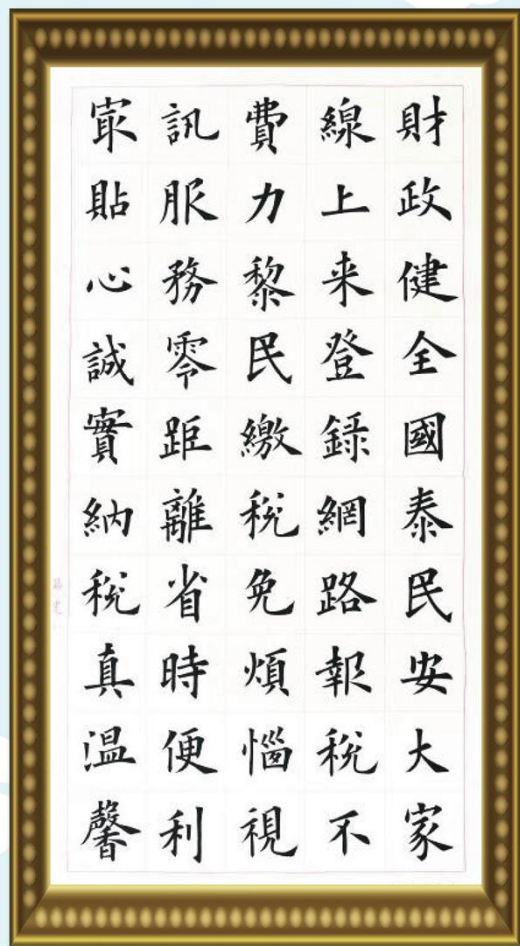 財政健全國泰民安大家
線上来登錄網路報稅不
費力黎民繳稅免煩惱視
訊服務零距離省時便利
寂貼心誠實納稅真溫馨